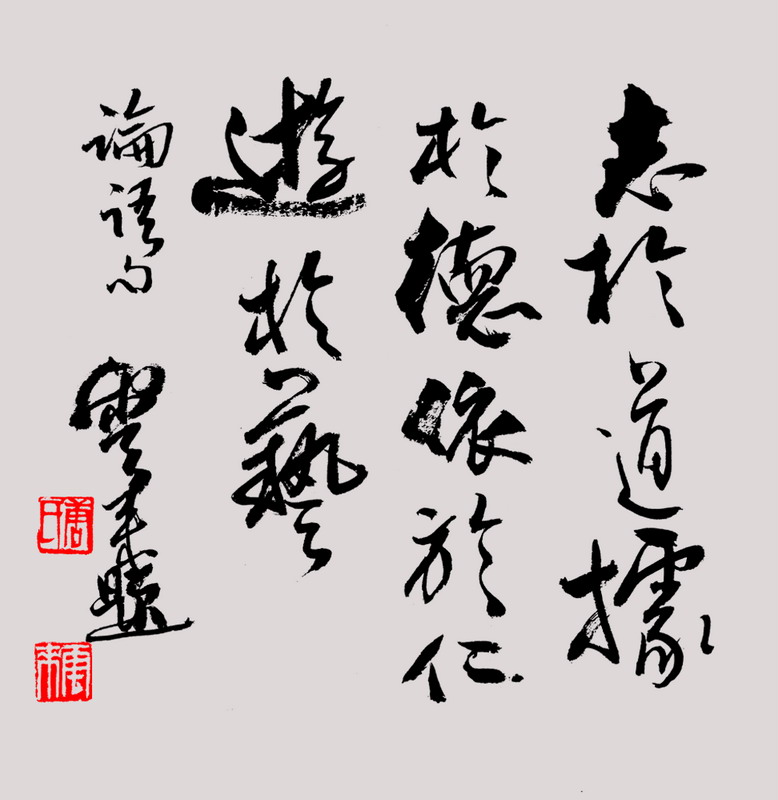 志於道據
於德依於仁
遊於藝
論語句